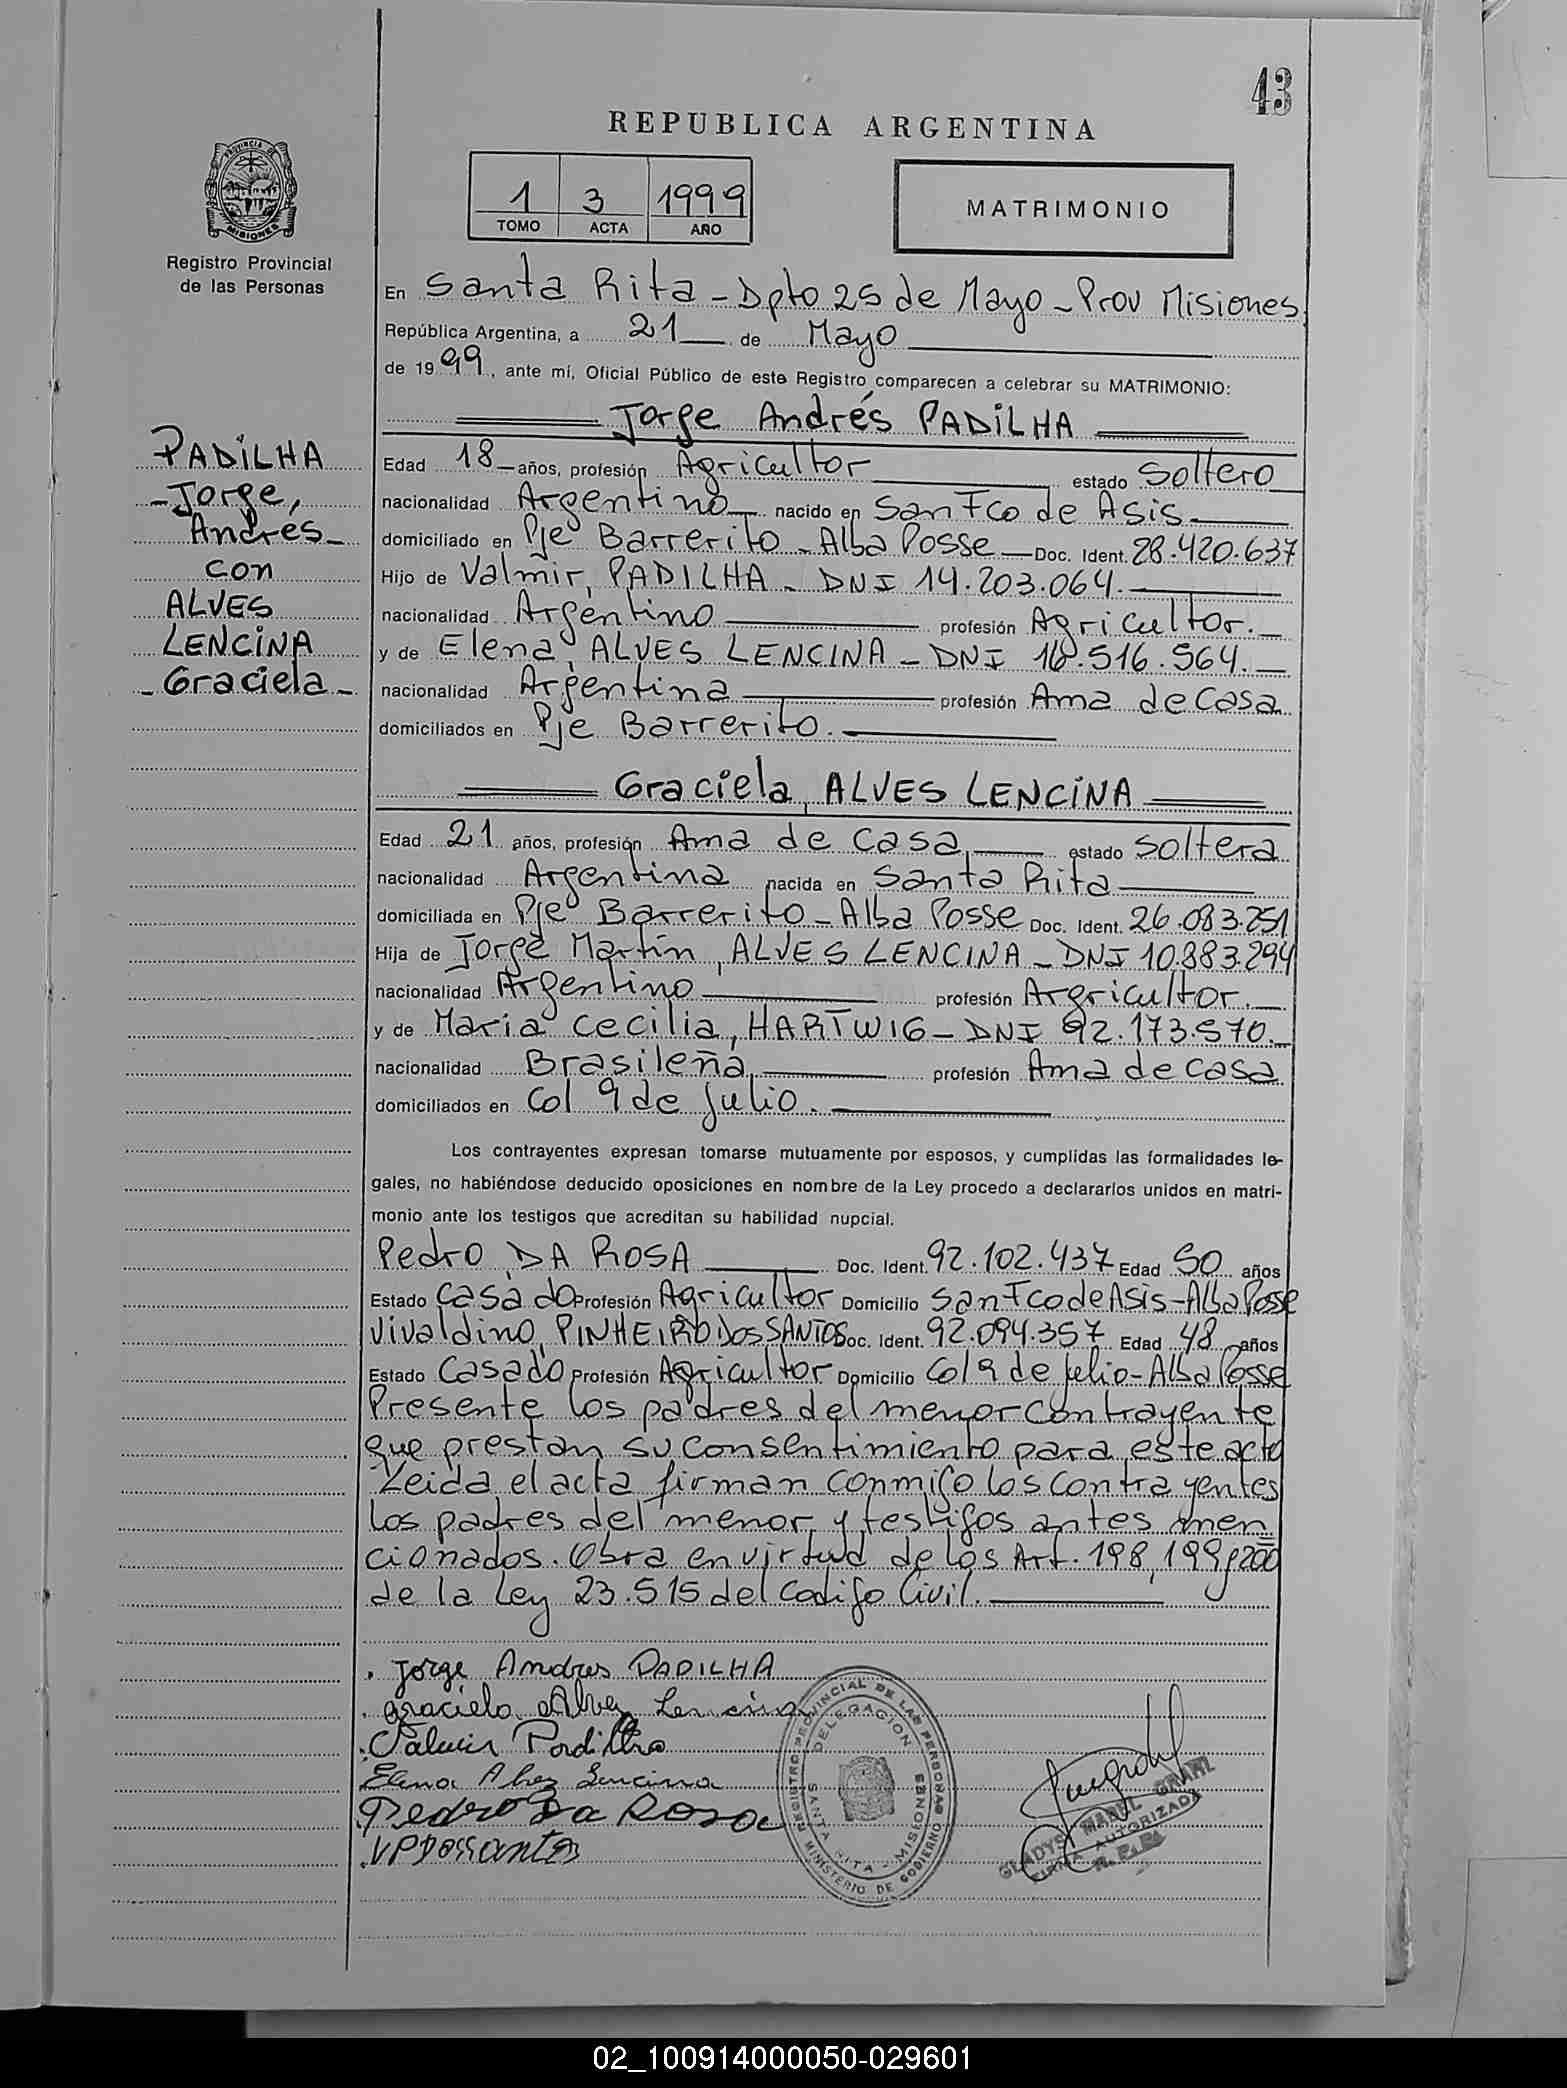 43
REPUBLICA ARGENTINA
PROVINCIA DE
MISIONES
1 3 1999
TOMO ACTA AÑO
MATRIMONIO
Registro Provincial
de las Personas
En Santa Rita - Dpto 25 de Mayo - Prov Misiones
República Argentina, a 21 de Mayo
de 1999, ante mí, Oficial Público de este Registro comparecen a celebrar su MATRIMONIO:
Jorge Andrés PADILHA
PADILHA
- Jorge,
Andrés -
con
ALVES
LENCINA
- Graciela -
Edad 18 años, profesión Agricultor estado Soltero
nacionalidad Argentino nacido en San Fco de Asis
domiciliado en Pje Barrerito - Alba Posse Doc. Ident. 28.420.637
Hijo de Valmir, PADILHA - DNI 14.203.064.
nacionalidad Argentino profesión Agricultor.
y de Elena, ALVES LENCINA - DNI 16.516.564.
nacionalidad Argentina profesión Ama de Casa
domiciliados en Pje Barrerito.
Graciela, ALVES LENCINA
Edad 21 años, profesión Ama de Casa estado Soltera
nacionalidad Argentina nacida en Santa Rita
domiciliada en Pje Barrerito - Alba Posse Doc. Ident. 26.083.251
Hija de Jorge Martín, ALVES LENCINA - DNI 10.883.294
nacionalidad Argentino profesión Argricultor.
y de Maria Cecilia, HARTWIG - DNI 92.173.570.
nacionalidad Brasileña profesión Ama de casa
domiciliados en Col 9 de Julio.
Los contrayentes expresan tomarse mutuamente por esposos, y cumplidas las formalidades le-
gales, no habiéndose deducido oposiciones en nombre de la Ley procedo a declararlos unidos en matri-
monio ante los testigos que acreditan su habilidad nupcial.
Pedro, DA ROSA Doc. Ident. 92.102.437 Edad 50 años
Estado Casado Profesión Agricultor Domicilio San Fco de Asis - Alba Posse
Vivaldino, PINHEIRO DOS SANTOS Doc. Ident. 92.094.357 Edad 48 años
Estado Casado Profesión Agricultor Domicilio Col 9 de Julio - Alba Posse
Presente los padres del menor contrayente
que prestan su consentimiento para este acto
Leida el acta firman conmigo los contrayentes
los padres del menor y testigos antes men
cionados. Obra en virtud de los Art. 198, 199 y 200
de la Ley 23.515 del Codigo Civil.
Jorge Andres PADILHA
Graciela Alvez Lencina
Valmir Padilha
Elena Alvez Lencina
Pedro Da Rosa
VPDossantos
REGISTRO PROVINCIAL DE LAS PERSONAS
MINISTERIO DE GOBIERNO
DELEGACION
SANTA RITA - MISIONES
GLADYS MABEL GRAHL
FIRMA AUTORIZADA
02_100914000050-029601